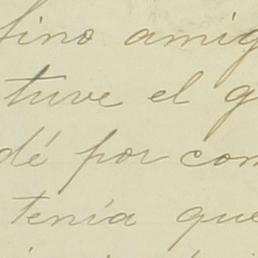 fino amig
tuve el g
dé por com
tenía que